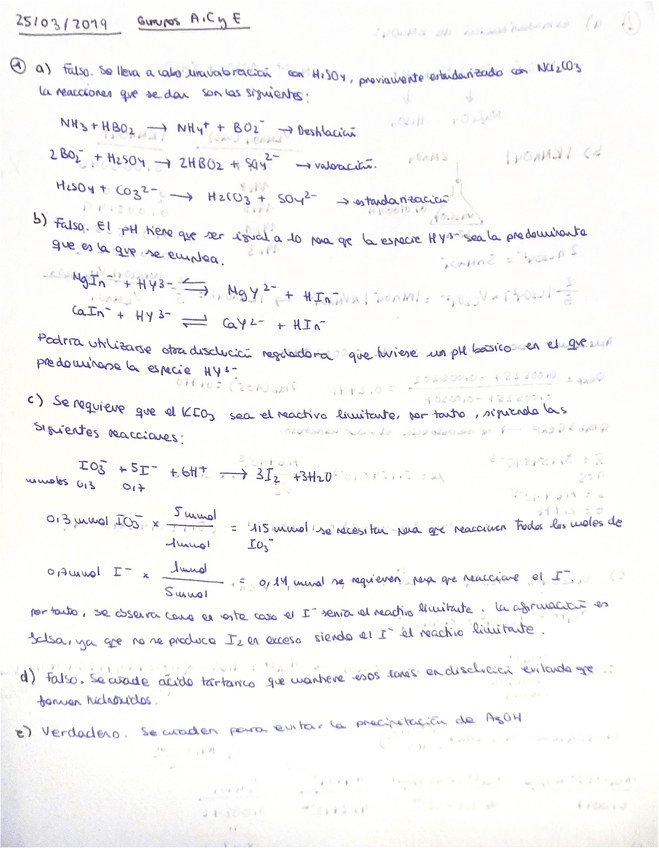 25/03/2019 Grupos A, C y E
① a) Falso. Se lleva a cabo una valoración con H2SO4, previamente estandarizado con Na2CO3
la reacciones que se dan son las siguientes:
NH3 + HBO2 → NH4+ + BO2- → Destilación
2BO2- + H2SO4 → 2HBO2 + SO4 2- → valoración.
H2SO4 + CO3 2- → H2CO3 + SO4 2- → estandarización
b) Falso. El pH tiene que ser igual a 10 para que la especie HY3- sea la predominante
que es la que se emplea.
MgIn- + HY3- ⇌ MgY2- + HIn-
CaIn- + HY3- ⇌ CaY2- + HIn-
Podría utilizarse otra disolución reguladora que tuviese un pH básico en el que
predominase la especie HY3-.
c) Se requiere que el KIO3 sea el reactivo limitante, por tanto, siguiendo las
siguientes reacciones:
IO3- + 5I- + 6H+ → 3I2 + 3H2O
mmoles 0,3 0,7
0,3 mmol IO3- × 5mmol / 1mmol = 1,5 mmol se necesitan para que reaccionen todos los moles de
IO3-
0,7 mmol I- × 1mmol / 5mmol = 0,14 mmol se requieren para que reaccione el I-,
por tanto, se observa como en este caso el I- sería el reactivo limitante. La afirmación es
falsa, ya que no se produce I2 en exceso siendo el I- el reactivo limitante.
d) Falso. Se añade ácido tartárico que mantiene esos iones en disolución evitando que
formen hidróxidos.
e) Verdadero. Se añaden para evitar la precipitación de AgOH